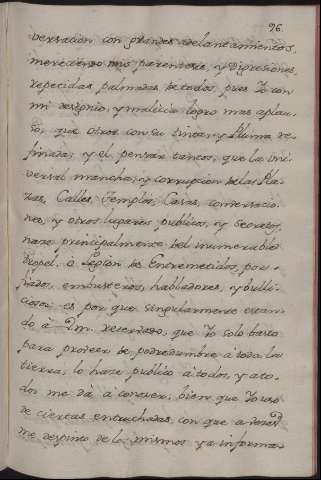 96.
versacion con grandes adelantamientos,
mereciendo mis parentesis, y Digresiones,
repetidas palmadas de todos, pues Yo con
mi designio, y malicia logro mas aplau-
so, que otros con su tinta, y Pluma re-
finada, y el pensar tantos, que la uni-
versal mancha, y corrupcion de las Pla-
zas, Calles, Templos, Casas, conversacio-
nes, y otros lugares publicos, y secretos,
nace principalmente del inumerable
tropel, o Legion de Entremetidos, por-
fiados, embusteros, habladores, y bulli-
ciosos es por que singularmente estan-
do à V.m. reservado, que Yo solo basto
para proveer de podredumbre à toda la
tierra, lo hace publico à todos, y à to-
dos me dà à conocer, bien que Yo uso
de ciertas entruchadas, con que a
me despinto de lo mismo, que ya informa-